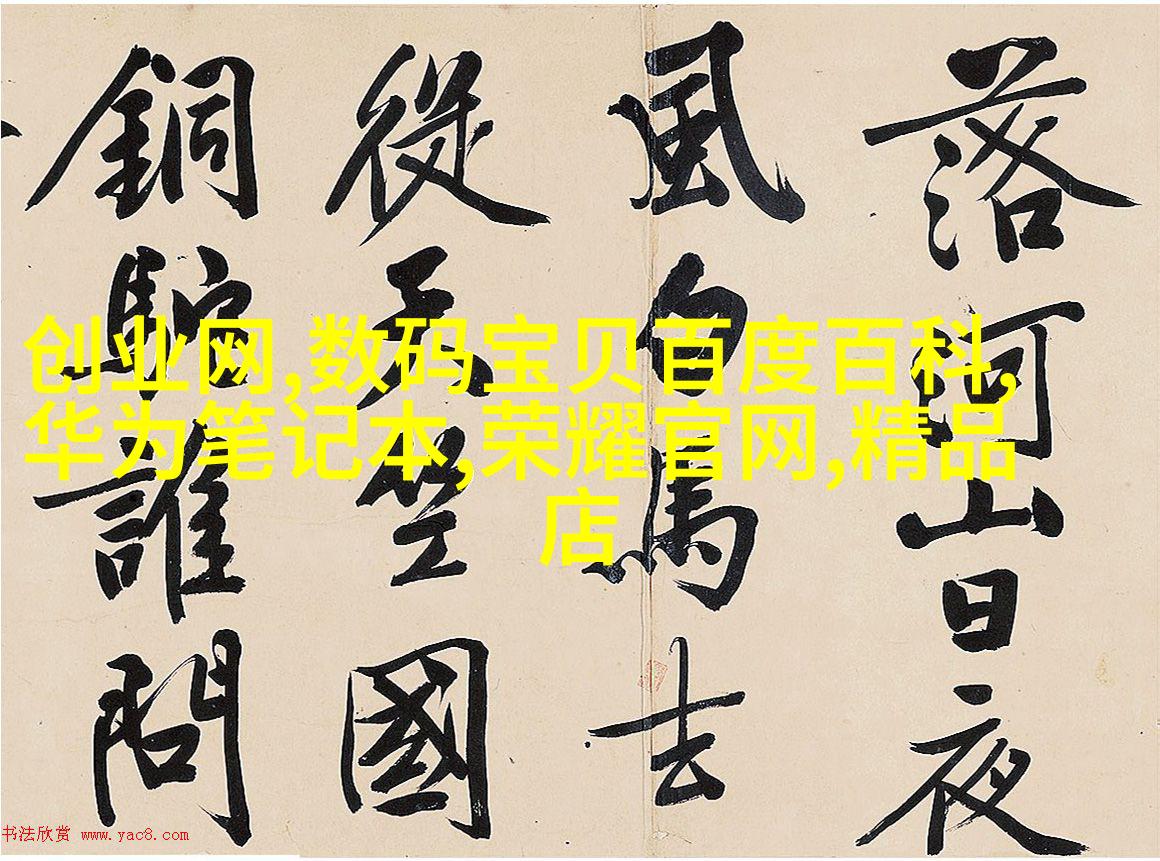 落河山日夜
風白馬去
從天竺國
銅駝誰問
创业网,数码宝贝百度百科,
华为笔记本,荣耀官网,精品
店
书法欣赏 www.yac8.com